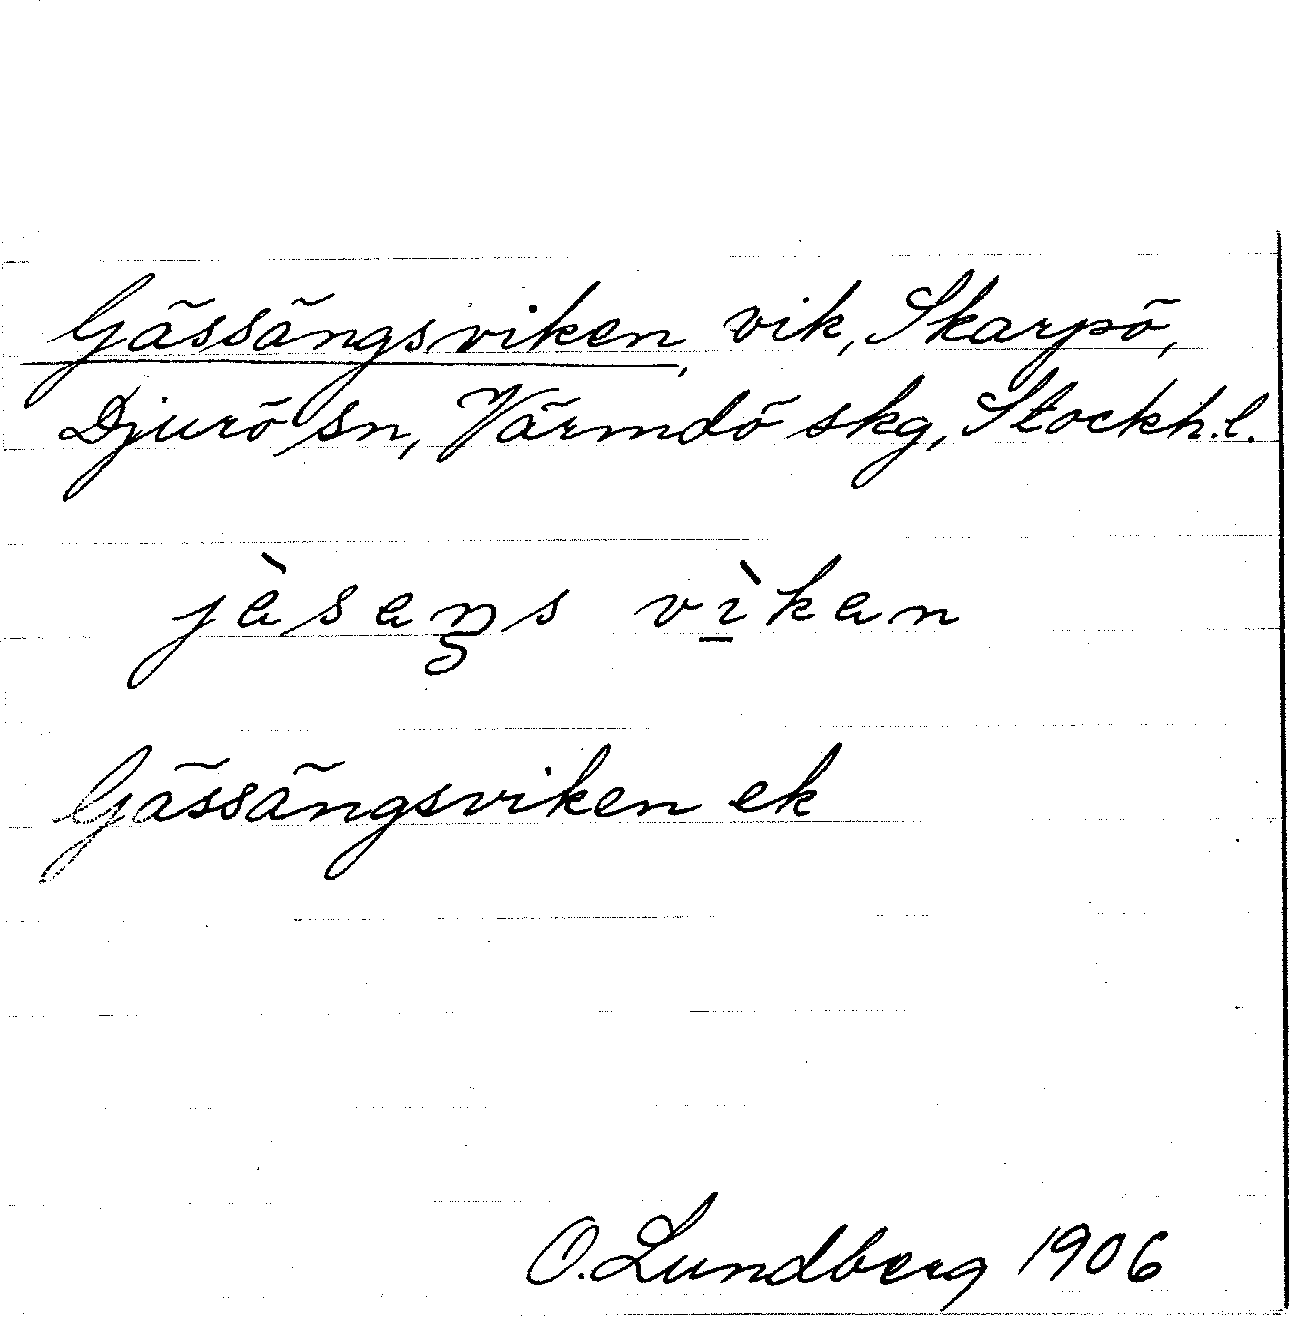 Gässängsviken, vik, Skarpö,
Djurö sn, Värmdö skg, Stockh.l.
jàsaŋs vı̱̀kan
Gässängsviken ek
O. Lundberg 1906